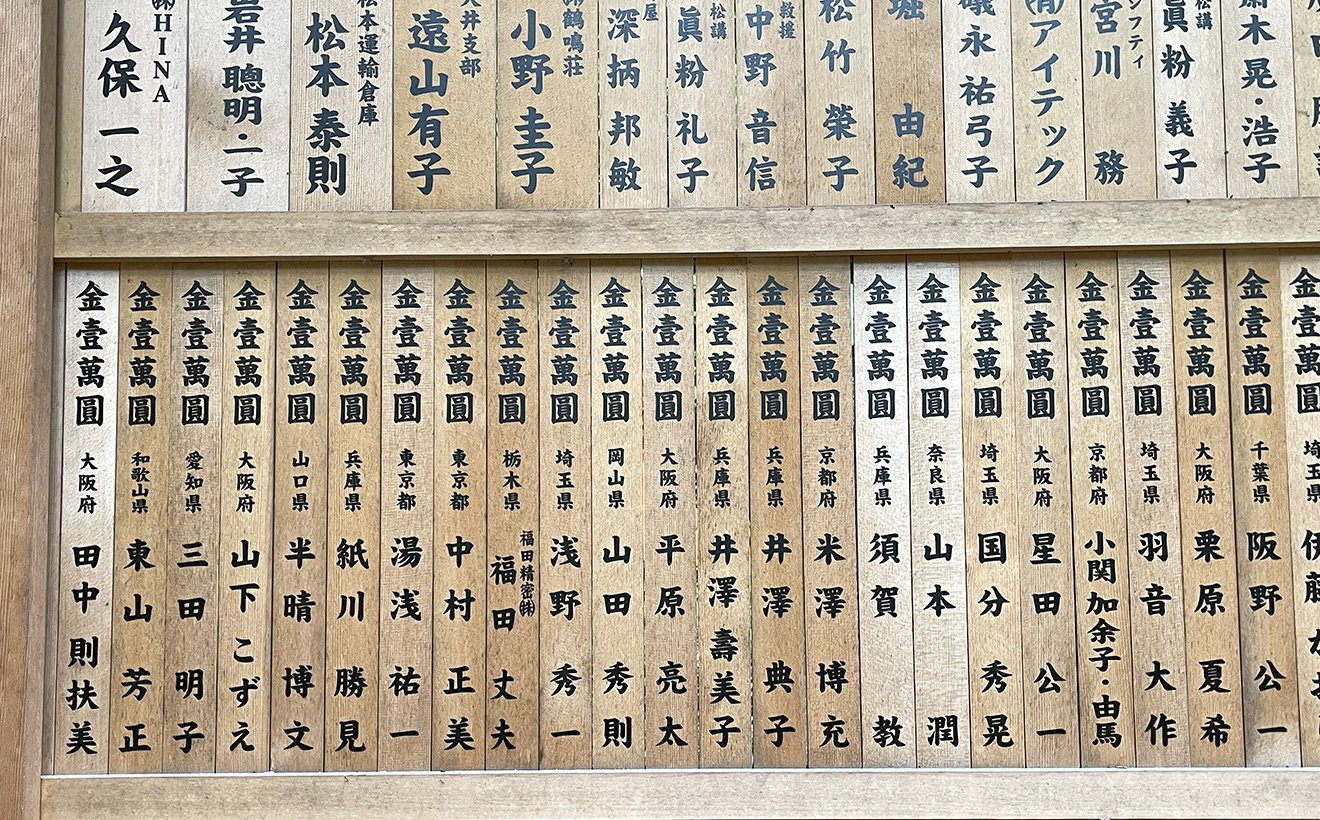 伊藤
埼玉県
金壹萬圓 千葉県 阪野 公一
金壹萬圓 大阪府 栗原 夏希
金壹萬圓 埼玉県 羽音 大作
金壹萬圓 京都府 小関 加余子・由馬
金壹萬圓 大阪府 星田 公一
金壹萬圓 埼玉県 国分 秀晃
金壹萬圓 奈良県 山本 潤
金壹萬圓 兵庫県 須賀 教
金壹萬圓 京都府 米澤 博充
金壹萬圓 兵庫県 井澤 典子
金壹萬圓 兵庫県 井澤 壽美子
金壹萬圓 大阪府 平原 亮太
金壹萬圓 岡山県 山田 秀則
金壹萬圓 埼玉県 浅野 秀一
金壹萬圓 栃木県 福田精密㈱ 福田 丈夫
金壹萬圓 東京都 中村 正美
金壹萬圓 東京都 湯浅 祐一
金壹萬圓 兵庫県 紙川 勝見
金壹萬圓 山口県 半晴 博文
金壹萬圓 大阪府 山下 こずえ
金壹萬圓 愛知県 三田 明子
金壹萬圓 和歌山県 東山 芳正
金壹萬圓 大阪府 田中 則扶美
木 晃・浩子
松講
眞粉 義子
宮川 務
㈲アイテック
礒永 祐弓子
堀 由紀
松竹 榮子
救援
中野 音信
松講
眞粉 礼子
屋
深柄 邦敏
㈱鶴鳴荘
小野 圭子
井支部
遠山 有子
松本運輸倉庫
松本 泰則
岩井 聰明・二子
㈱HINA
久保 一之